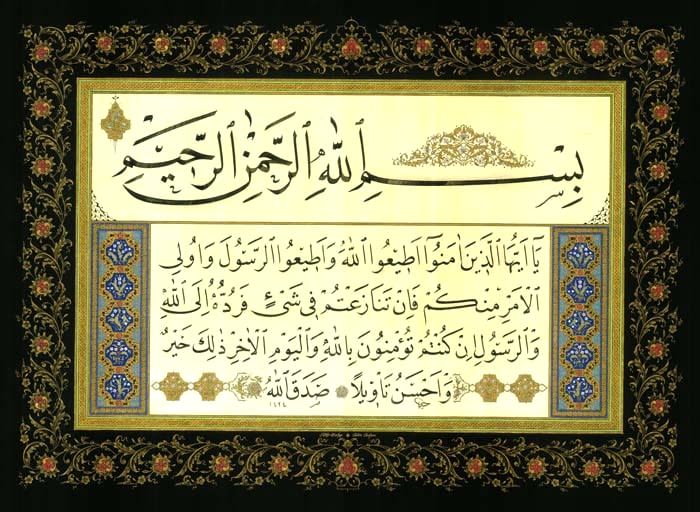 بِسْمِ اللهِ الرَّحْمٰنِ الرَّحِيْمِ
يَا اَيُّهَا الَّذِينَ اٰمَنُوٓا اَطٖيعُوا اللهَ وَاَطٖيعُوا الرَّسُولَ وَاُولِى
الْاَمْرِ مِنْكُمْ فَاِنْ تَنَازَعْتُمْ فٖى شَىْءٍ فَرُدُّوهُ اِلَى اللهِ
وَالرَّسُولِ اِنْ كُنْتُمْ تُؤْمِنُونَ بِاللهِ وَالْيَوْمِ الْاٰخِرِ ذٰلِكَ خَيْرٌ
وَاَحْسَنُ تَاْوٖيلًا صَدَقَ اللهُ